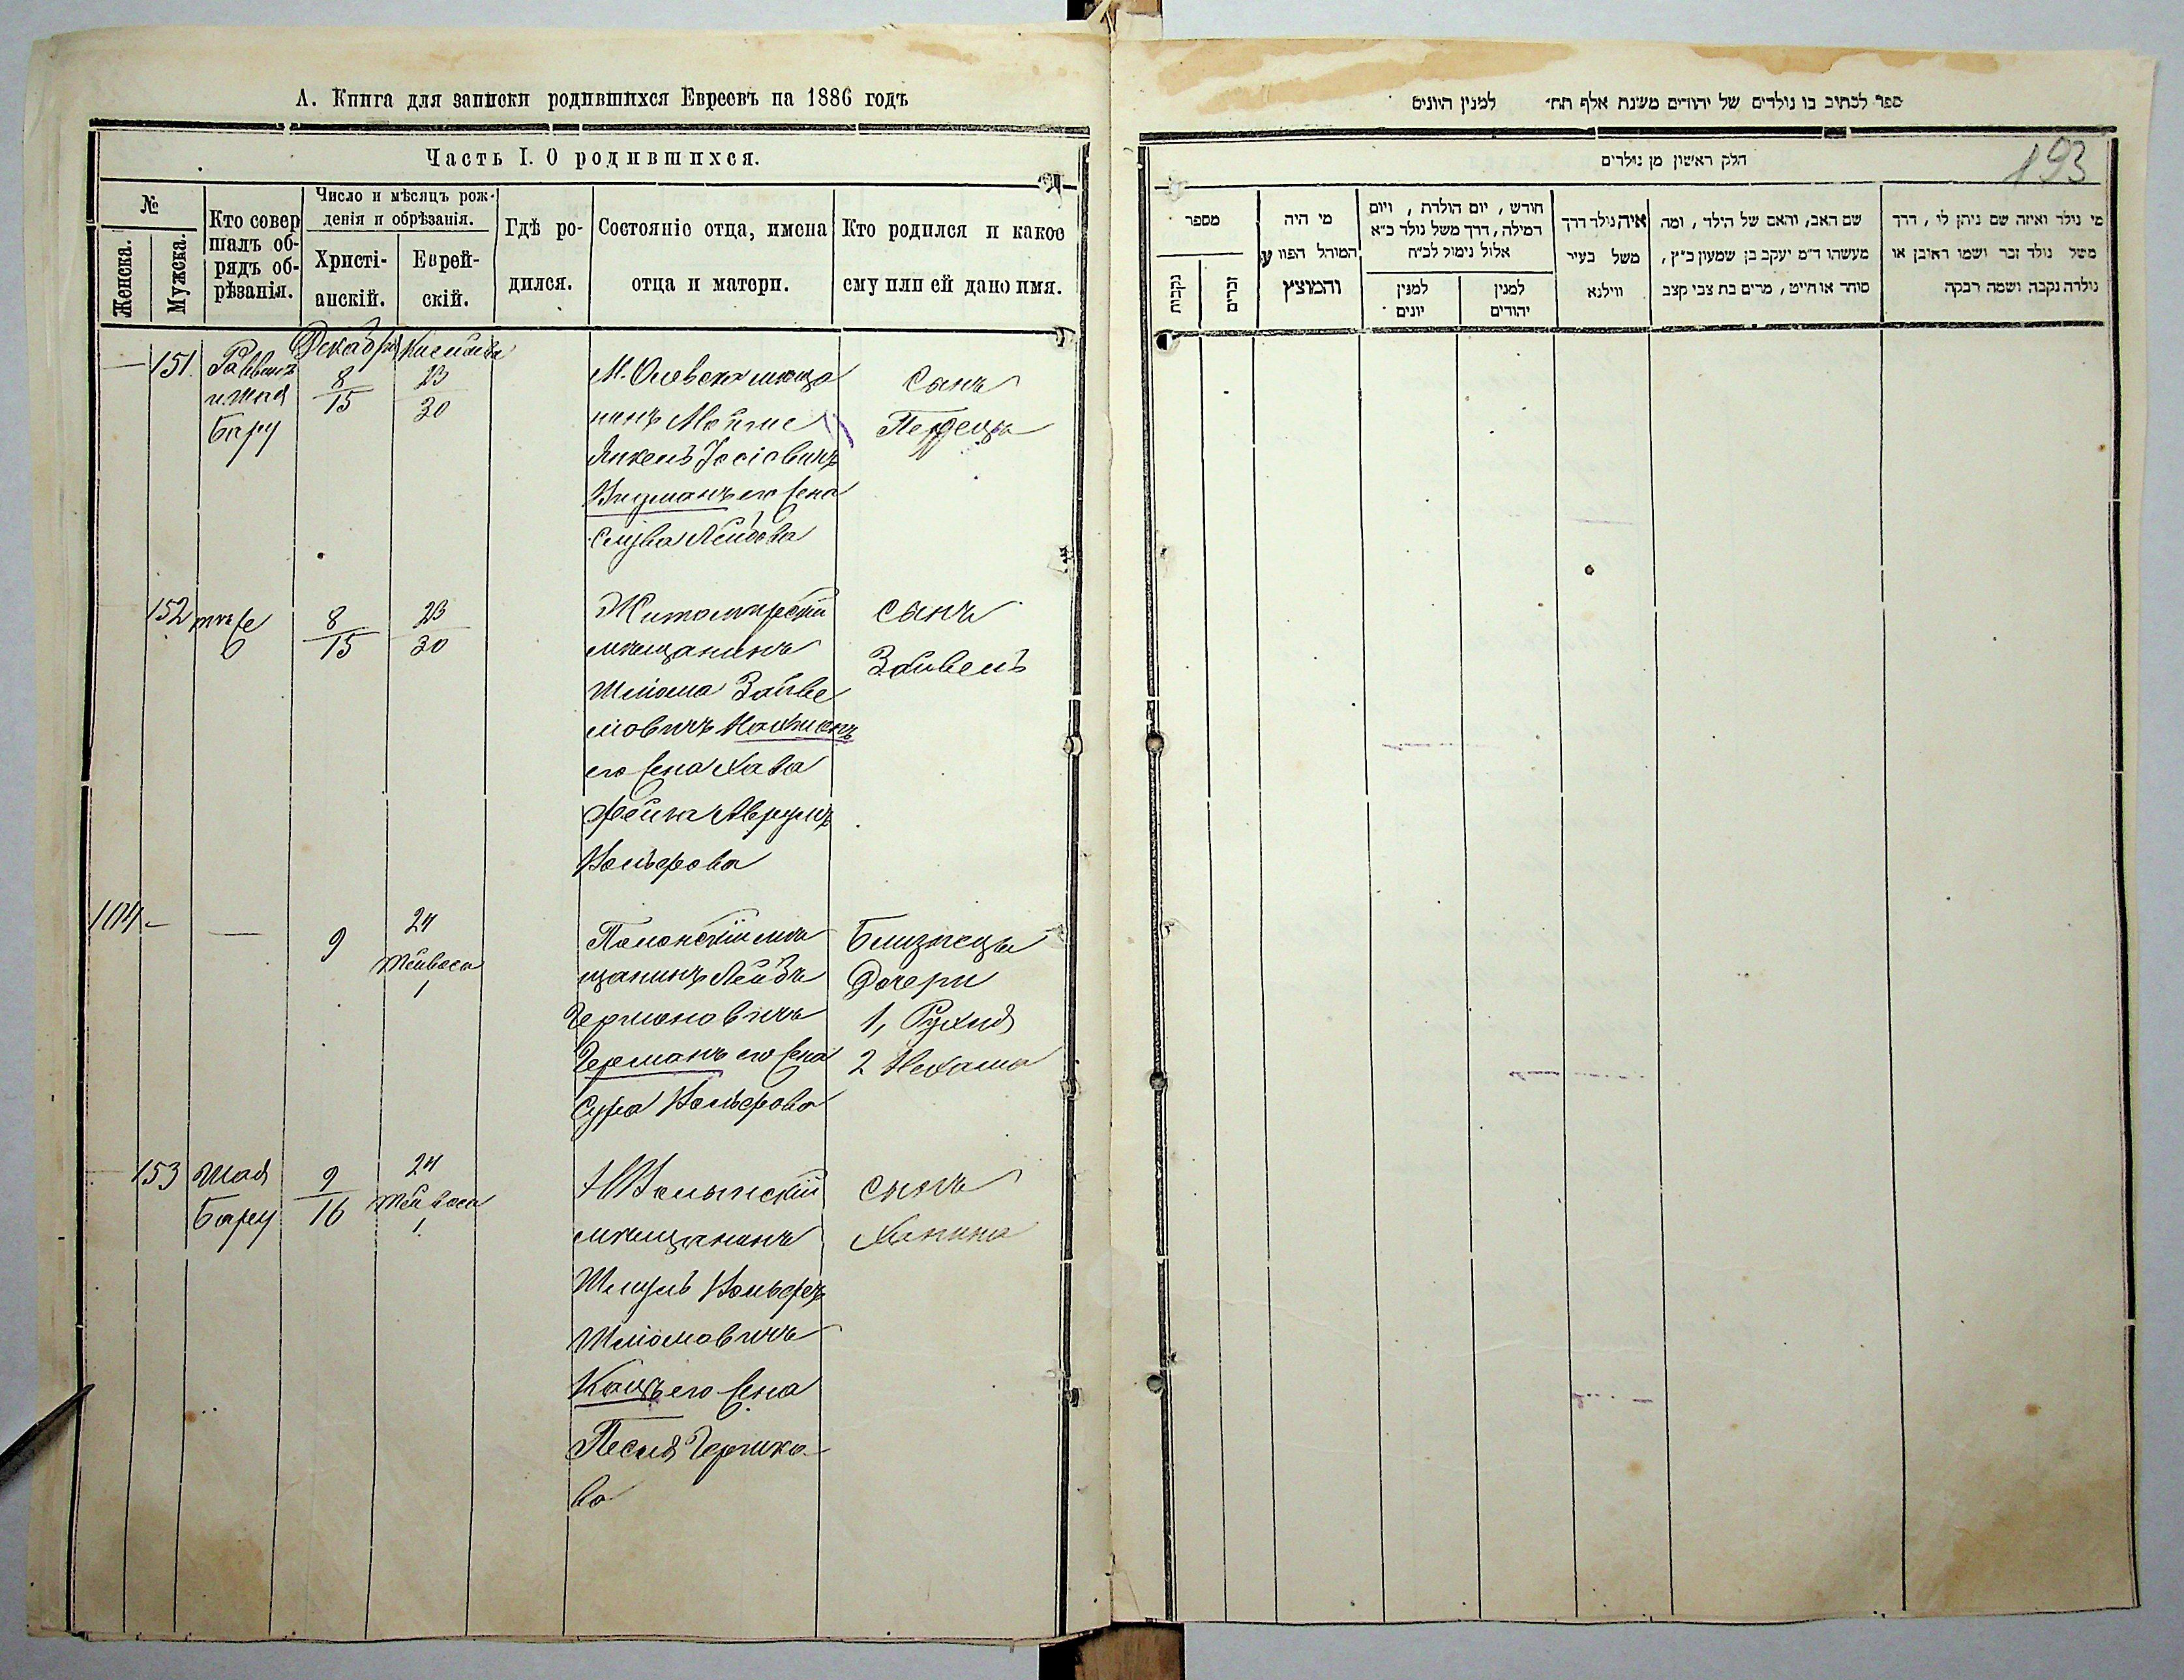 А. Книга для записки родившихся Евреевъ на 1886 годъ
Часть I. О родившихся.
№
Женска.
Мужска.
Кто совер
шалъ об-
рядъ об-
рѣзанія.
Число и мѣсяцъ рож-
денія и обрѣзанія.
Христі-
анскій.
Еврей-
скій.
Гдѣ ро-
дился.
Состояніе отца, имена
отца и матери.
Кто родился и какое
ему или ей дано имя.
Декабря
151
Раввинъ
и Шая
Бару
8
15
23
30
М. Олевска мѣща
нинъ
Янкель Іосіовичъ
его жена
Лейбова
Сынъ
152
тѣ же
8
15
23
30
Житомирскій
мѣщанинъ
Шліома Зайве
ловичъ
его жена Хава
Фейга Аврумъ
Вольфова
сынъ
Зайвель
104
—
9
24
Тейвеса
1
Полонскій мѣ
щанинъ Лейбъ
Гершоновичъ
Германъ его жена
Сура Вольфова
Близнецы
Дочери
1, Рухля
2 Нехама
153
Шая
Бару
9
16
24
Тейвеса
1
НВолынскій
мѣщанинъ
Шмуль Вольфъ
Шліомовичъ
Кацъ его жена
Песля Гершко-
ва
сынъ
Ханина
ספר לכתוב בו נולדים של יהודים משנת אלף תת״ למנין היונים
חלק ראשון מן נולדים
193
מספר
נקבות
זכרים
מי היה
המוהל הפורע
והמוצץ
חודש, יום הולדת, ויום
דמילה, דרך משל נולד כ״א
אלול נימול לכ״ח
למנין
יונים
למנין
יהודים
איה נולד דרך
משל בעיר
ווילנא
שם האב, והאם של הילד, ומה
מעשהו ד״מ יעקב בן שמעון כ״ץ,
סוחר או חייט, מרים בת צבי קצב
מי נולד ואיזה שם ניתן לו, דרך
משל נולד זכר ושמו ראובן או
נולדה נקבה ושמה רבקה